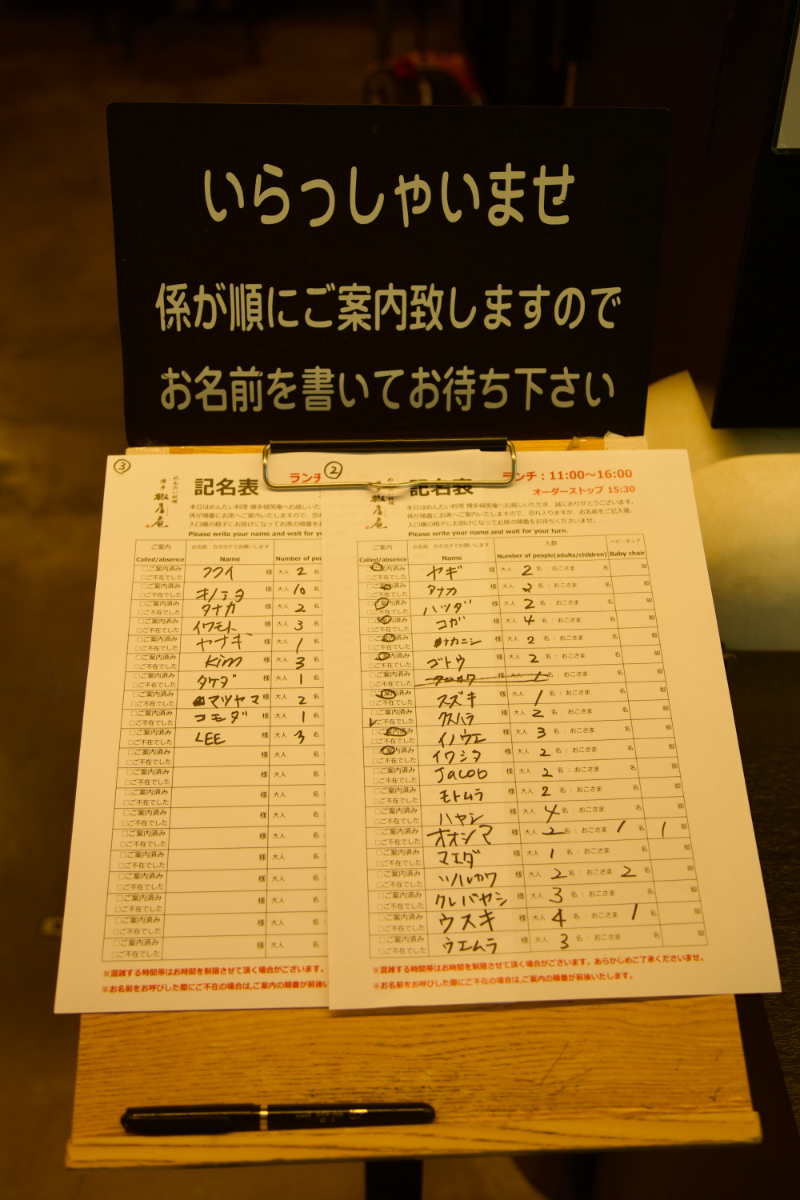 いらっしゃいませ
係が順にご案内致しますので
お名前を書いてお待ち下さい
③
めんたい料理
博多
記名表
ランチ
Please write your name and wait for y
ご案内 お名前 カタカナでお願いします
Called/absence Name Number of peo
□ご案内済み □ご不在でした フクイ 様 大人 2 名
□ご案内済み □ご不在でした キノシタ 様 大人 10 名
□ご案内済み □ご不在でした タナカ 様 大人 2 名
□ご案内済み □ご不在でした イワモト 様 大人 3 名
□ご案内済み □ご不在でした ヤナギ 様 大人 1 名
□ご案内済み □ご不在でした Kim 様 大人 3 名
□ご案内済み □ご不在でした タケダ 様 大人 1 名
□ご案内済み □ご不在でした マツヤマ 様 大人 2 名
□ご案内済み □ご不在でした コモダ 様 大人 1 名
□ご案内済み □ご不在でした LEE 様 大人 3 名
□ご案内済み □ご不在でした 様 大人 名
□ご案内済み □ご不在でした 様 大人 名
□ご案内済み □ご不在でした 様 大人 名
□ご案内済み □ご不在でした 様 大人 名
□ご案内済み □ご不在でした 様 大人 名
□ご案内済み □ご不在でした 様 大人 名
□ご案内済み □ご不在でした 様 大人 名
□ご案内済み □ご不在でした 様 大人 名
□ご案内済み □ご不在でした 様 大人 名
□ご案内済み □ご不在でした 様 大人 名
※混雑する時間帯はお時間を制限させて頂く場合がございます。
※お名前をお呼びした際にご不在の場合は、ご案内の順番が前後い
②
めんたい料理
博多
記名表
ランチ：11:00～16:00
オーダーストップ 15:30
Please write your name and wait for your turn.
ご案内 お名前 カタカナでお願いします 人数 ベビーチェア
Called/absence Name Number of people(adults/children) Baby chair
□ご案内済み □ご不在でした ヤギ 様 大人 2 名： おこさま 名 脚
□ご案内済み □ご不在でした タナカ 様 大人 2 名： おこさま 名 脚
□ご案内済み □ご不在でした ハツダ 様 大人 2 名： おこさま 名 脚
□ご案内済み □ご不在でした コガ 様 大人 4 名： おこさま 名 脚
□ご案内済み □ご不在でした ナカニシ 様 大人 2 名： おこさま 名 脚
□ご案内済み □ご不在でした ゴトウ 様 大人 2 名： おこさま 名 脚
□ご案内済み □ご不在でした 様 大人 1 名： おこさま 名 脚
□ご案内済み □ご不在でした スズキ 様 大人 1 名： おこさま 名 脚
□ご案内済み □ご不在でした クスハラ 様 大人 2 名： おこさま 名 脚
□ご案内済み □ご不在でした イノウエ 様 大人 3 名： おこさま 名 脚
□ご案内済み □ご不在でした イワシタ 様 大人 2 名： おこさま 名 脚
□ご案内済み □ご不在でした Jacob 様 大人 2 名： おこさま 名 脚
□ご案内済み □ご不在でした モトムラ 様 大人 2 名： おこさま 名 脚
□ご案内済み □ご不在でした ハヤシ 様 大人 4 名： おこさま 名 脚
□ご案内済み □ご不在でした オオシマ 様 大人 2 名： おこさま 1 名 1 脚
□ご案内済み □ご不在でした マエダ 様 大人 1 名： おこさま 名 脚
□ご案内済み □ご不在でした ツルカワ 様 大人 2 名： おこさま 2 名 脚
□ご案内済み □ご不在でした クレバヤシ 様 大人 3 名： おこさま 名 脚
□ご案内済み □ご不在でした ウスキ 様 大人 4 名： おこさま 1 名 脚
□ご案内済み □ご不在でした ウエムラ 様 大人 3 名： おこさま 名 脚
※混雑する時間帯はお時間を制限させて頂く場合がございます。あらかじめご了承くださいませ。
※お名前をお呼びした際にご不在の場合は、ご案内の順番が前後いたします。